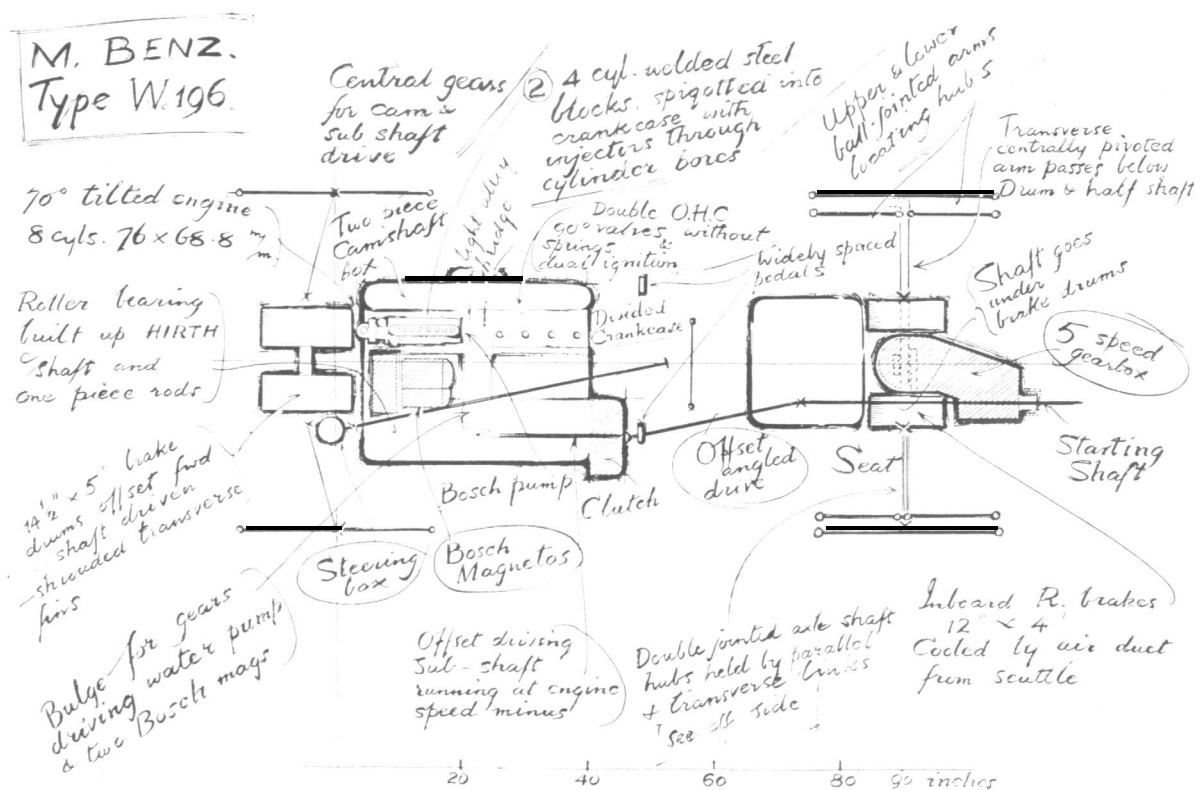 M. BENZ.
Type W.196.
Central gears
for cam &
sub shaft
drive
2
4 cyl. welded steel
blocks, spigotted into
crankcase with
injectors through
cylinder bores
Upper & lower
ball-jointed arms
locating hubs
Transverse
centrally pivoted
arm passes below
Drum & half shaft
70° tilted engine
8 cyls. 76 x 68.8 m/m.
Two piece
Camshaft
box
light alloy
bridge
Double O.H.C
90° valves without
springs &
dual ignition
Widely spaced
pedals
Shaft goes
under
brake drums
Roller bearing
built up HIRTH
shaft and
one piece rods
Divided
Crankcase
5 speed
gearbox
14½" x 5" brake
drums offset fwd
shaft driven
shrouded transverse
fins
Bosch pump
Clutch
Offset
angled
drive
Seat
Starting
Shaft
Steering
box
Bosch
Magnetos
Bulge for gears
driving water pump
& two Bosch mags
Offset driving
Sub-shaft
running at engine
speed minus
Double jointed axle shaft
hubs held by parallel
+ transverse links
see off side
Inboard R. brakes
12" x 4"
Cooled by air duct
from scuttle
20 40 60 80 90 inches